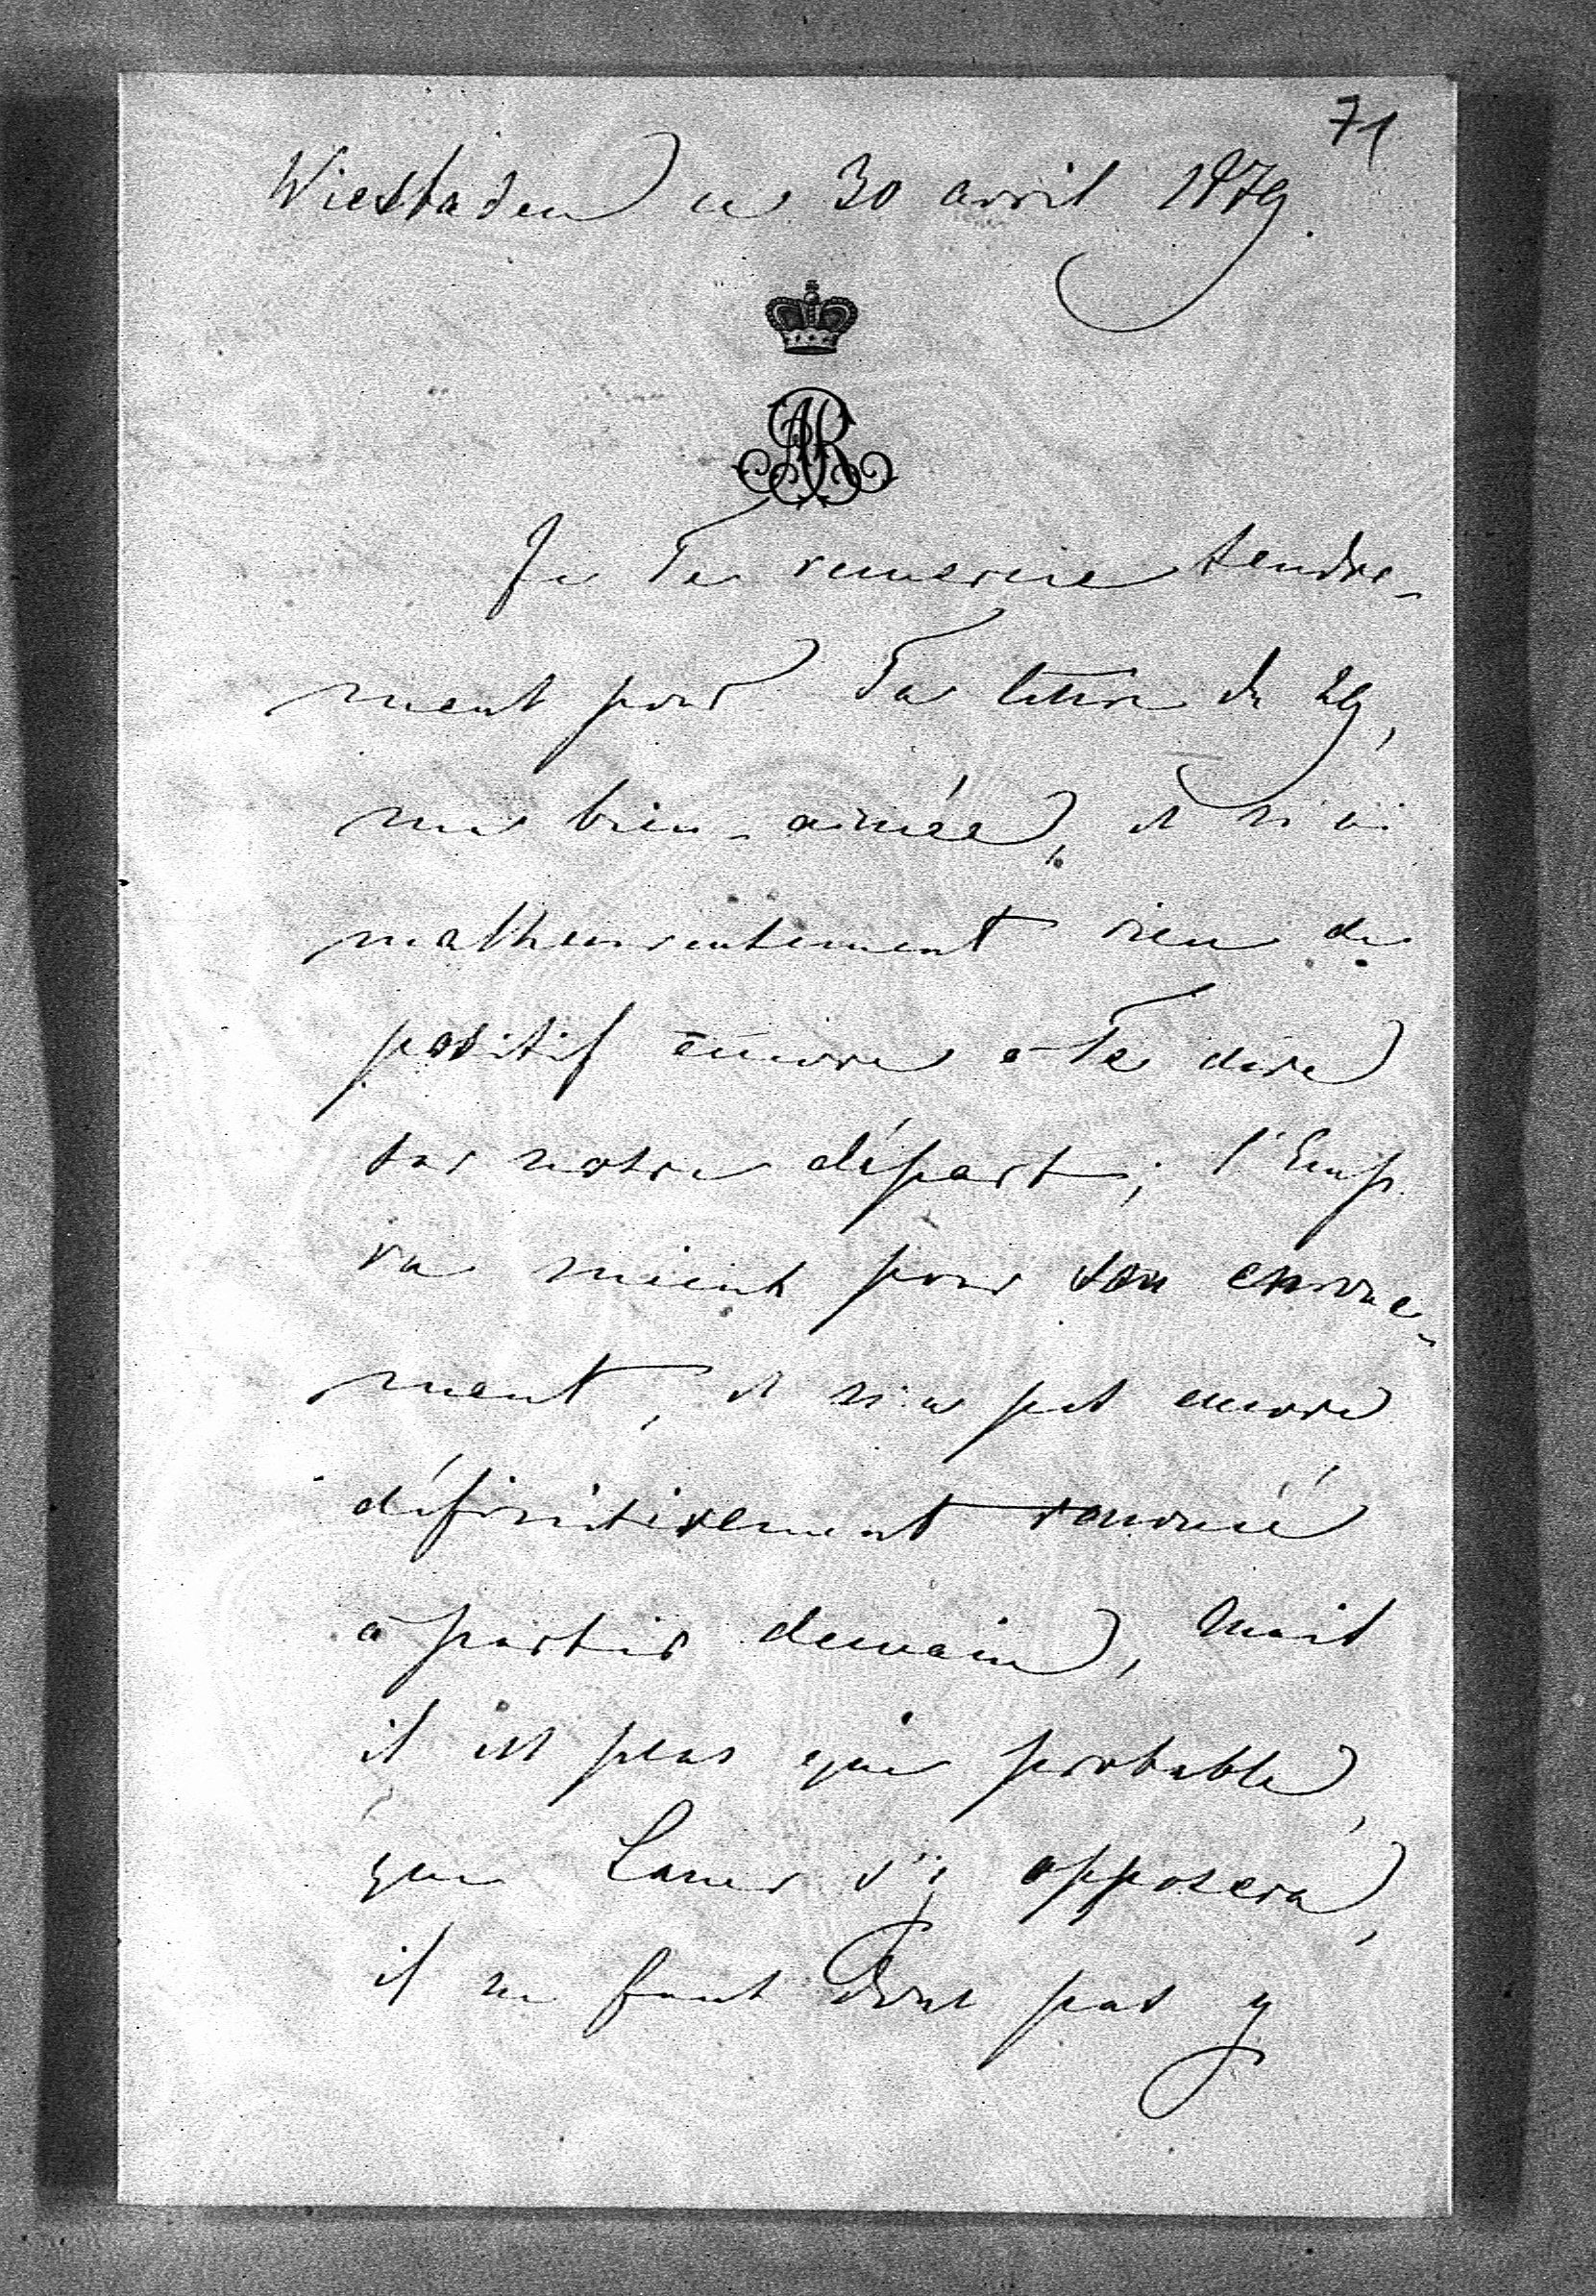 71
Wiesbaden ce 30 avril 1879.
AR
Je Te remercie tendre-
ment pour Ta lettre du 29,
ma bien-aimée, et n'ai
malheureusement rien de
positif encore à Te dire
sur notre départ; l'Emp.
va mieux pour son enroue-
ment, et n'a pas encore
définitivement renoncé
à partir demain, mais
il est plus que probable,
que Lauer s'y opposera,
il ne faut donc pas y